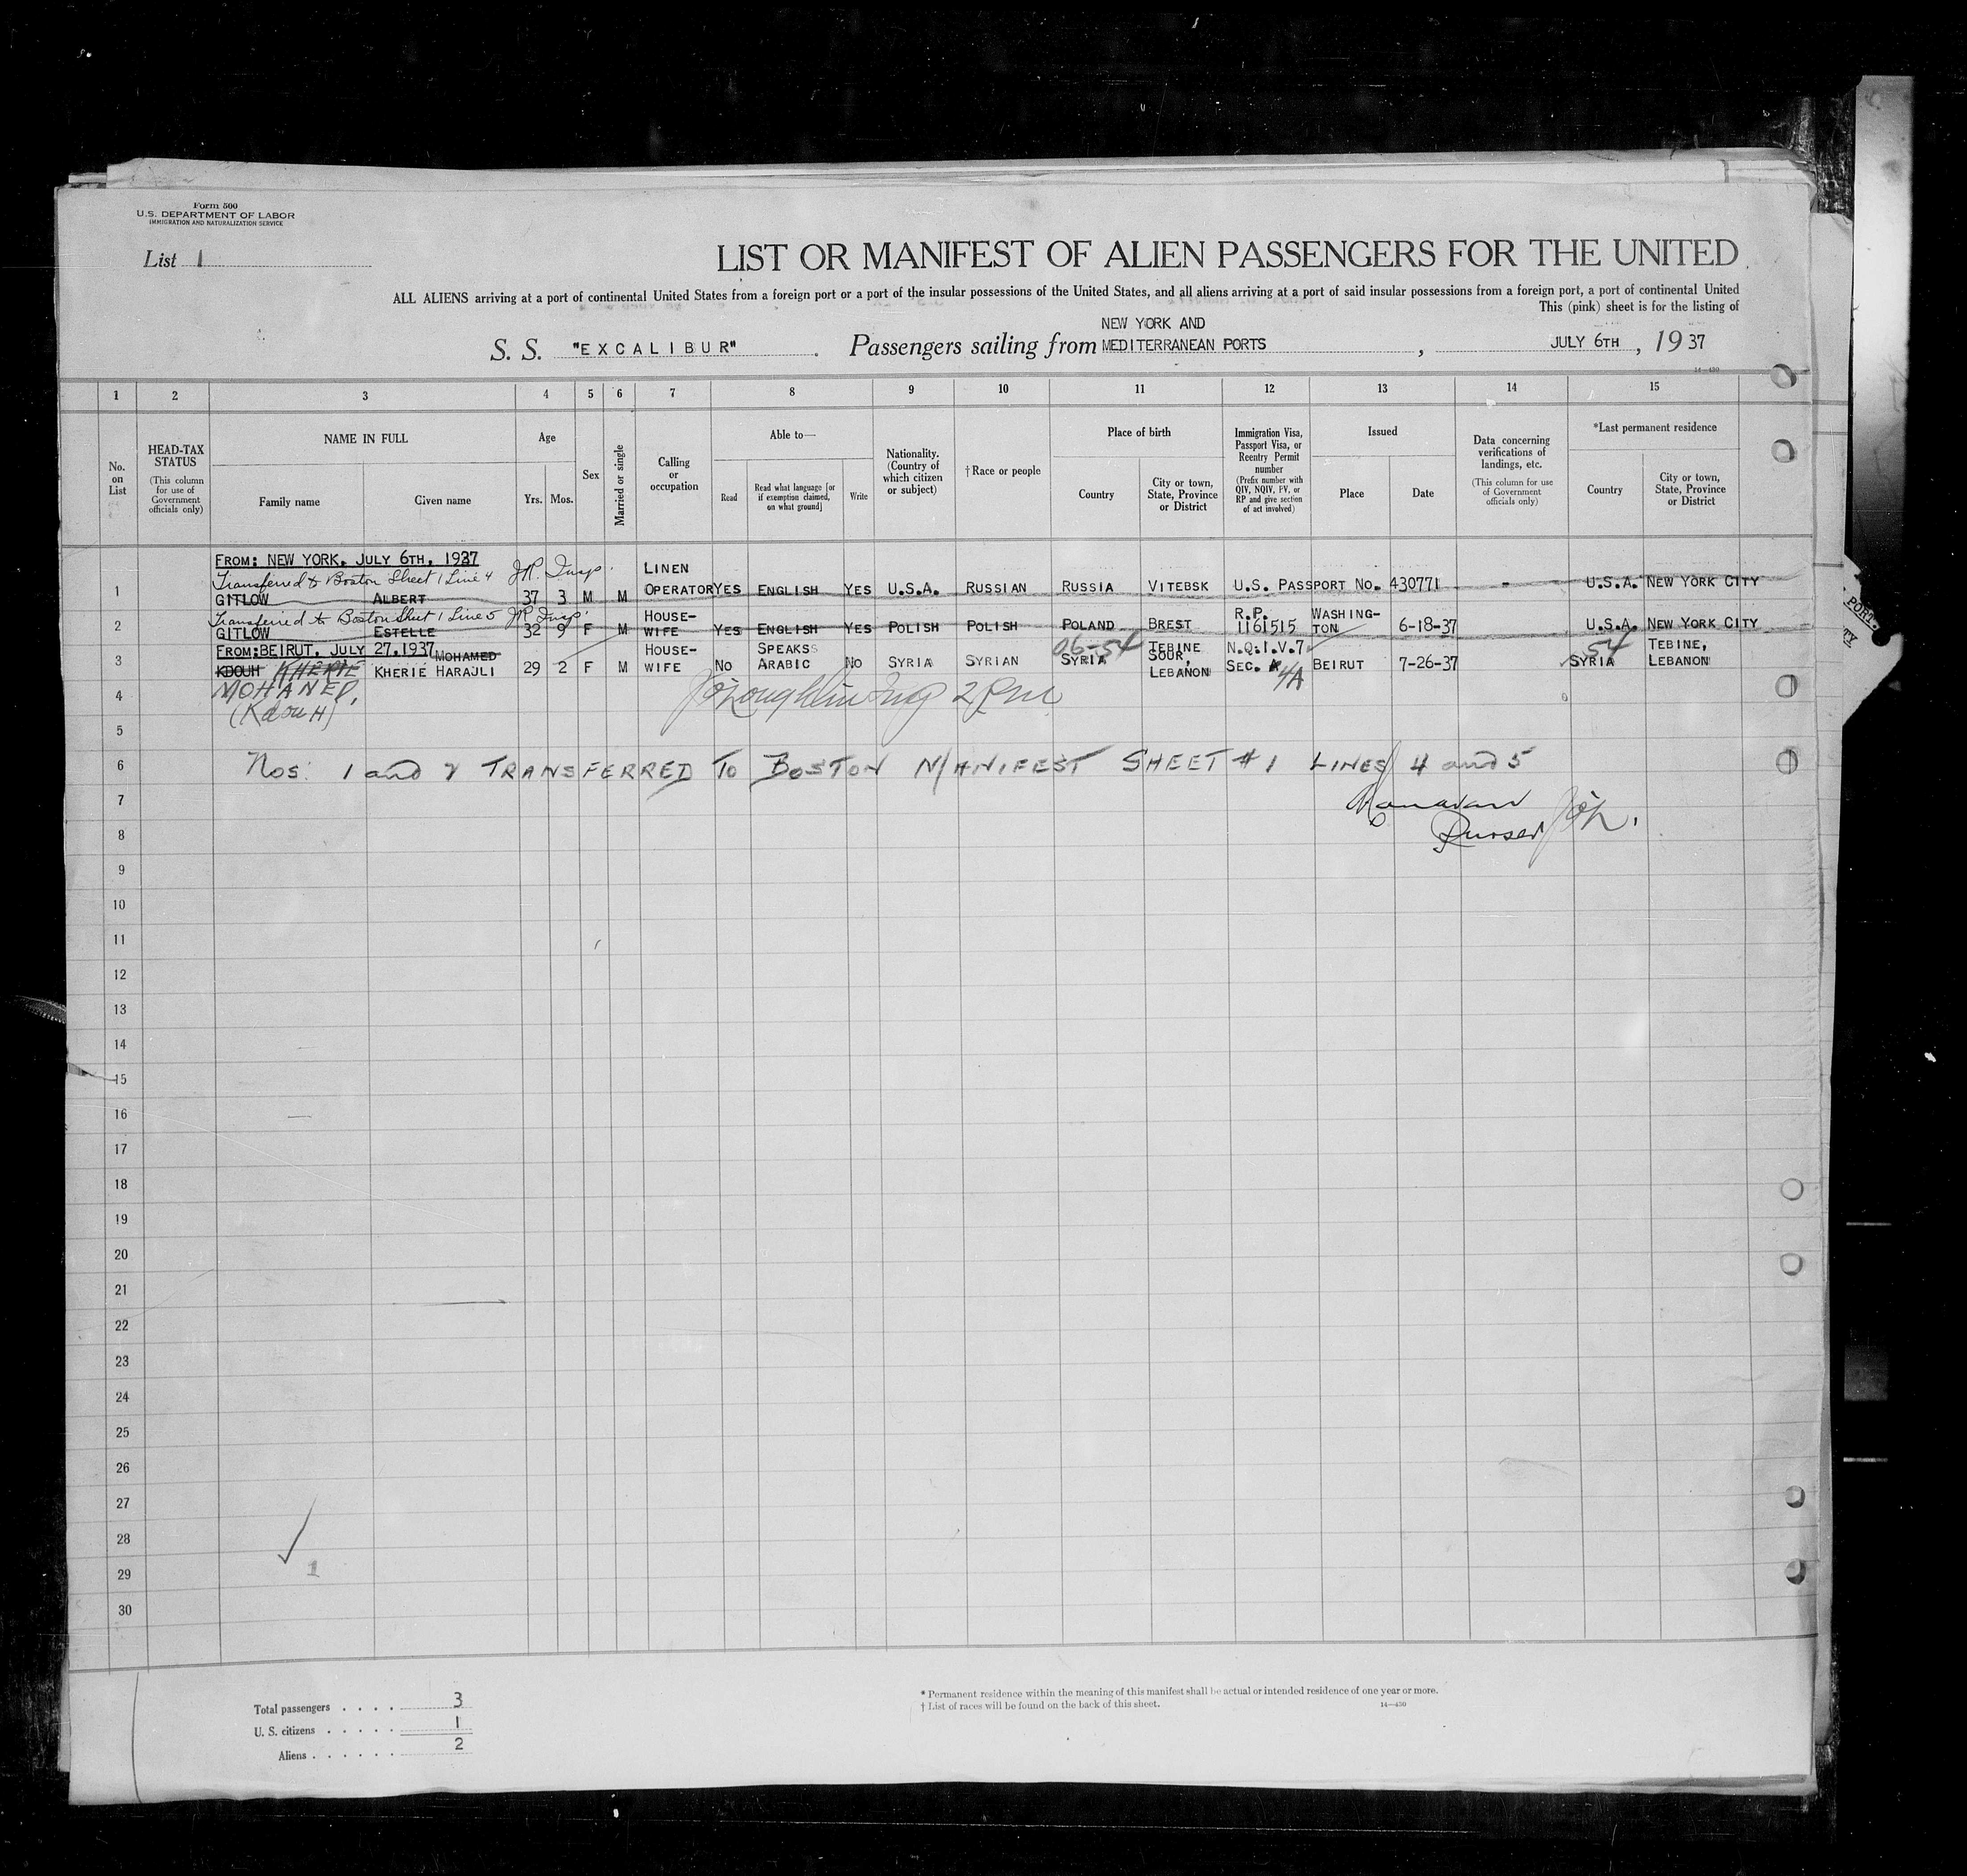 Form 500
U.S. DEPARTMENT OF LABOR
IMMIGRATION AND NATURALIZATION SERVICE
List 1
LIST OR MANIFEST OF ALIEN PASSENGERS FOR THE UNITED
ALL ALIENS arriving at a port of continental United States from a foreign port or a port of the insular possessions of the United States, and all aliens arriving at a port of said insular possessions from a foreign port, a port of continental United
This (pink) sheet is for the listing of
NEW YORK AND
S. S. "EXCALIBUR" Passengers sailing from MEDITERRANEAN PORTS, JULY 6TH, 1937
14—430
1 2 3 4 5 6 7 8 9 10 11 12 13 14 15
No. on List
HEAD-TAX STATUS (This column for use of Government officials only)
NAME IN FULL
Family name Given name
Age
Yrs. Mos.
Sex
Married or single
Calling or occupation
Able to—
Read Read what language [or if exemption claimed, on what ground] Write
Nationality. (Country of which citizen or subject)
†Race or people
Place of birth
Country City or town, State, Province or District
Immigration Visa, Passport Visa, or Reentry Permit number (Prefix number with QIV, NQIV, PV, or RP and give section of act involved)
Issued
Place Date
Data concerning verifications of landings, etc. (This column for use of Government officials only)
*Last permanent residence
Country City or town, State, Province or District
FROM: NEW YORK, JULY 6TH, 1937
Transferred to Boston Sheet 1 Line 4 Insp.
1 GITLOW ALBERT 37 3 M M LINEN OPERATOR YES ENGLISH YES U.S.A. RUSSIAN RUSSIA VITEBSK U.S. PASSPORT NO. 430771 - U.S.A. NEW YORK CITY
Transferred to Boston Sheet 1 Line 5 Insp.
2 GITLOW ESTELLE 32 9 F M HOUSE-WIFE YES ENGLISH YES POLISH POLISH POLAND BREST R.P. 1161515 WASHING-TON 6-18-37 U.S.A. NEW YORK CITY
FROM: BEIRUT, JULY 27, 1937 MOHAMED
3 KDOUH KHERIE KHERIE HARAJLI 29 2 F M HOUSE-WIFE NO SPEAKS ARABIC NO SYRIA SYRIAN 06-54 SYRIA TEBINE SOUR, LEBANON N.Q.I.V.7 SEC. 4A BEIRUT 7-26-37 54 SYRIA TEBINE, LEBANON
4 MOHAMED, Insp 2 PM
(KdouH)
5
6 Nos. 1 and 2 TRANSFERRED TO BOSTON MANIFEST SHEET #1 LINES 4 and 5
7
8 Purser
9
10
11
12
13
14
15
16
17
18
19
20
21
22
23
24
25
26
27
28
29 1
30
Total passengers . . . . 3
U. S. citizens . . . . . 1
Aliens . . . . . . 2
* Permanent residence within the meaning of this manifest shall be actual or intended residence of one year or more.
† List of races will be found on the back of this sheet. 14—430
PORT.